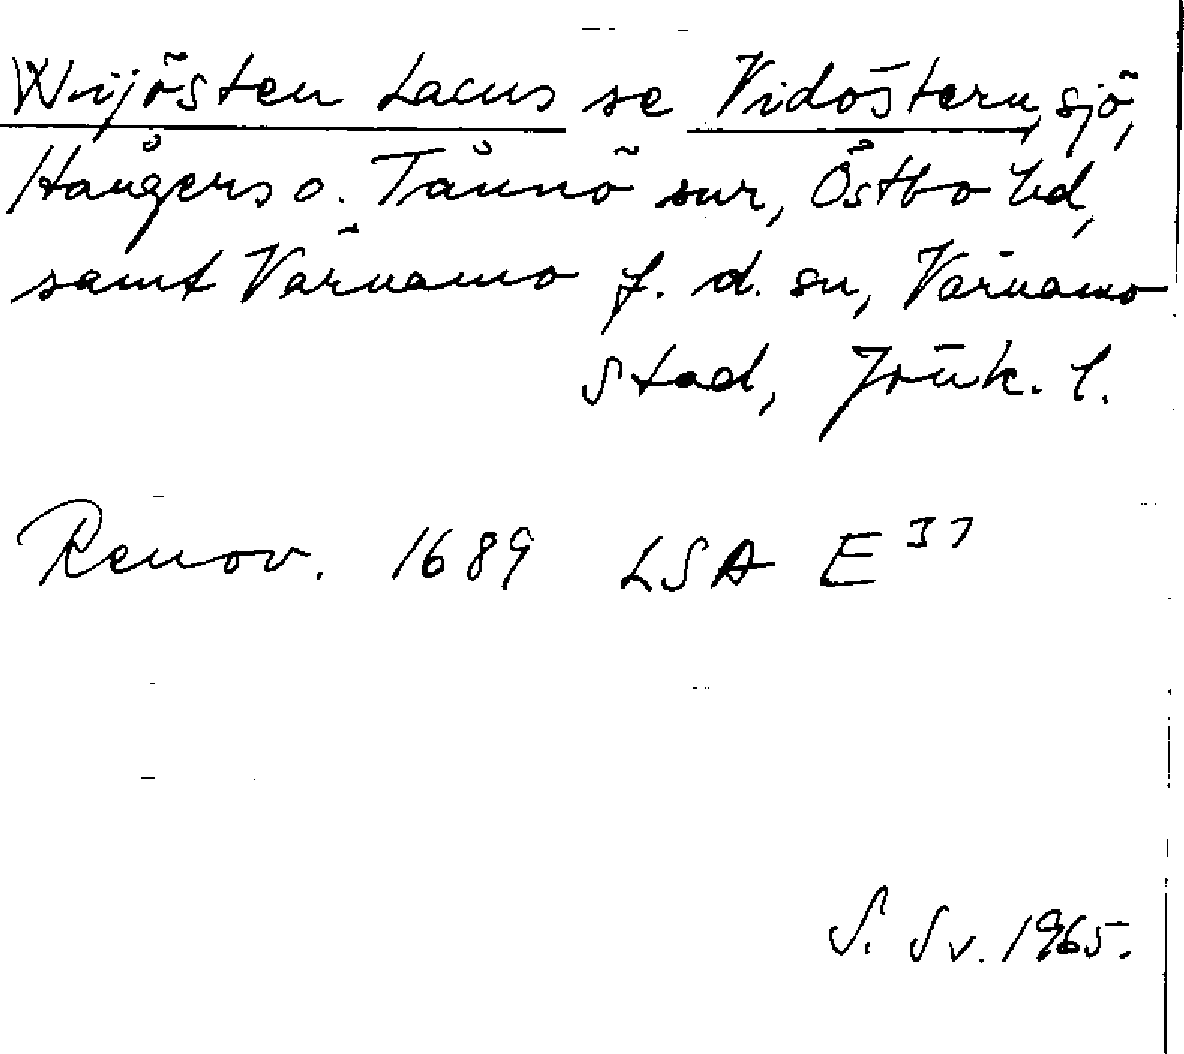 Wijösten Lacus se Vidöstern, sjö,
Hångers o. Tånnö snr, Östbo hd,
samt Värnamo f. d. sn, Värnamo
stad, Jönk. l.
Renov. 1689 LSA E 37
S. Sv. 1965.